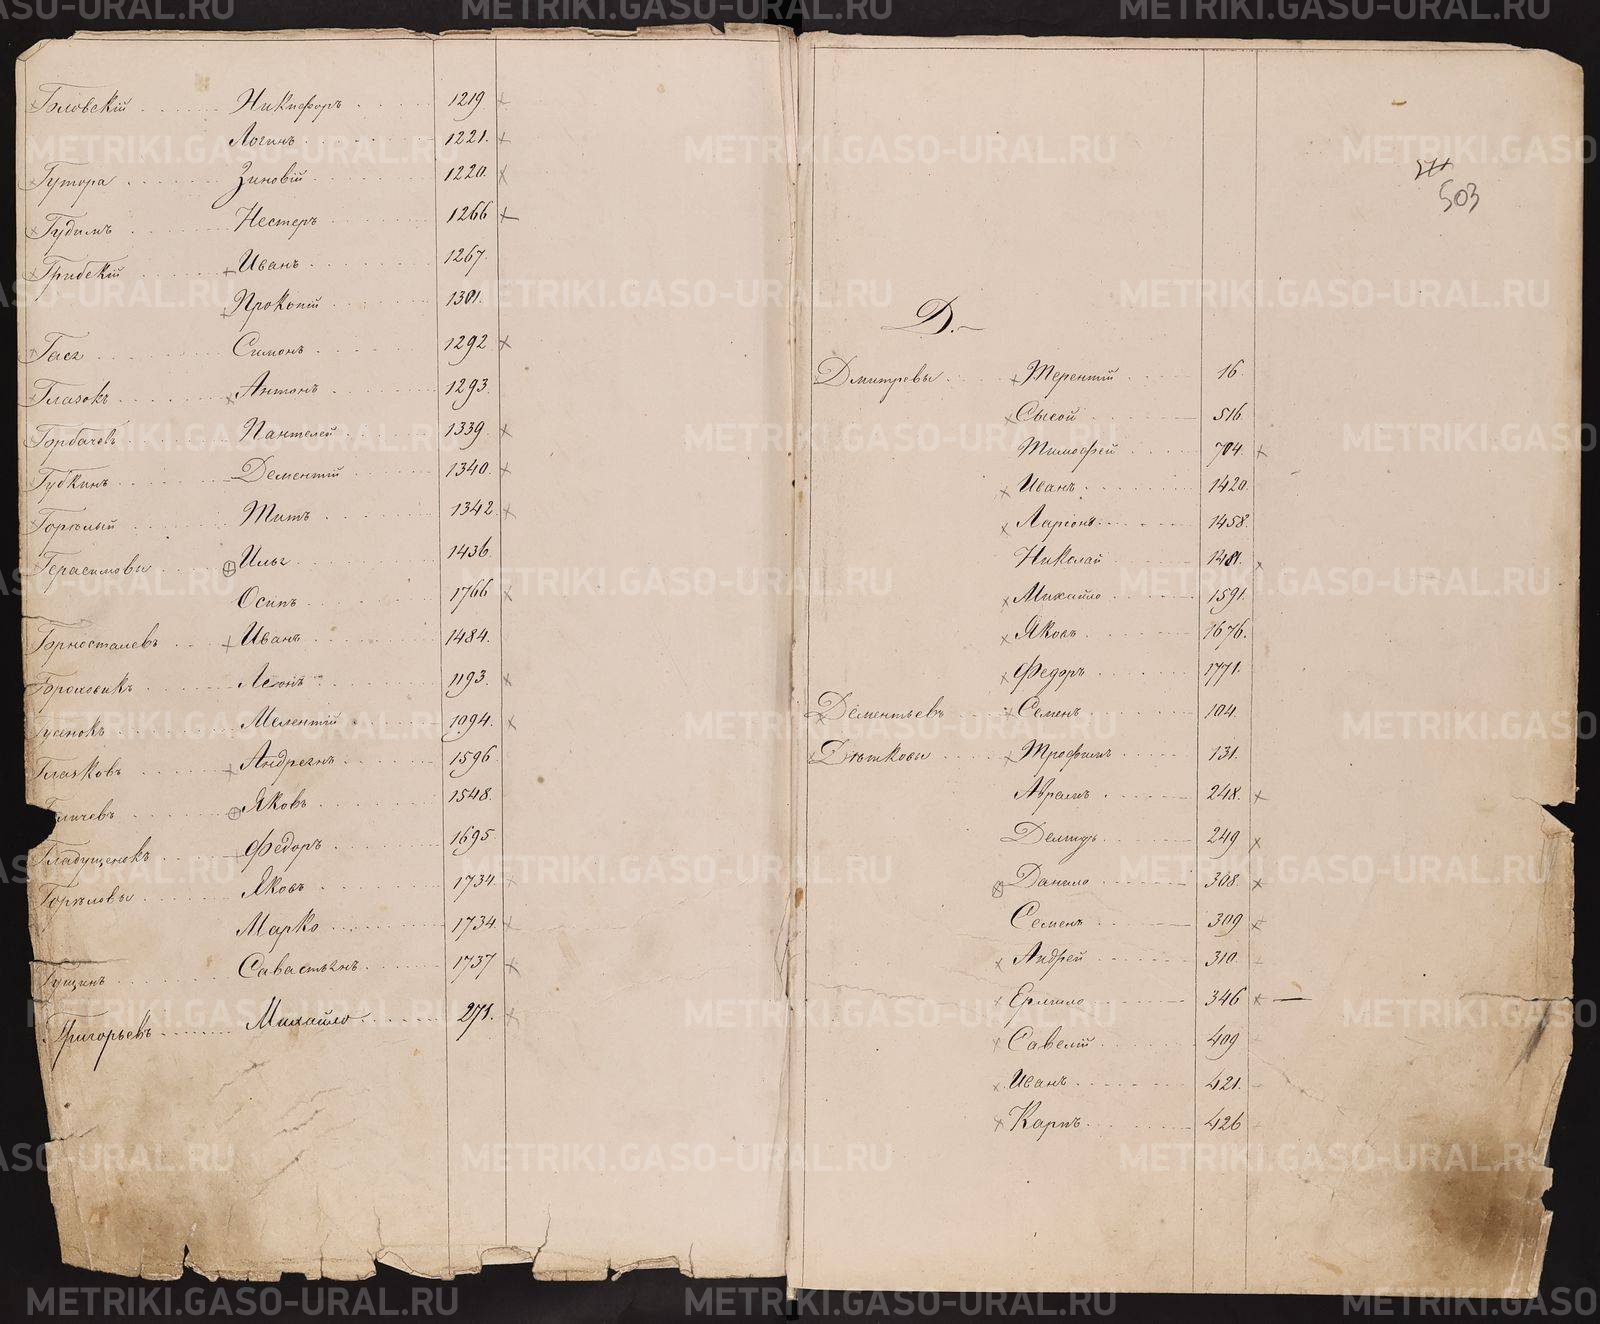 Гловскій Никифоръ 1219
Логинъ 1221.
Гутора Зиновій 1220.
Гудимъ Нестеръ 1266
Грибскій Иванъ 1267.
Прокопій 1301.
Симонъ 1292
Глазокъ Антонъ 1293.
Горбачевъ Пантелей 1339.
Губкинъ Дементій 1340.
Горѣлый Титъ 1342
Герасимовы 1436.
Осипъ 1766
Горносталевъ Иванъ 1484.
Гороховикъ Леонъ 1193.
Гусенокъ Мелентій 1094.
Глазковъ Андреянъ 1596
Яковъ 1548.
Гладущенокъ Федоръ 1695.
Горѣловы Яковъ 1734.
Марко 1734.
Гущинъ Савастьянъ 1737
Григорьевъ Михайло 271.
503
Д.
Дмитревы Терентій 16.
Сысой 516
Тимофей 704.
Иванъ 1420.
Ларіонъ 1458.
Николай 1481.
Михайло 1591.
Яковъ 1676.
Федоръ 1771.
Дементьевъ Семенъ 104.
Дѣтковы Трофимъ 131.
Абрамъ 248.
Демидъ 249
Данило 308.
Семенъ 309
Андрей 310.
Ермило 346
Савелій 409
Иванъ 421.
Карпъ 426
METRIKI.GASO-URAL.RU